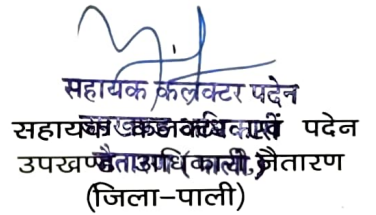 सहायक कलक्टर पदेन
सहायक कलक्टर एवं पदेन
उपखण्ड अधिकारी, जैतारण
(जिला-पाली)